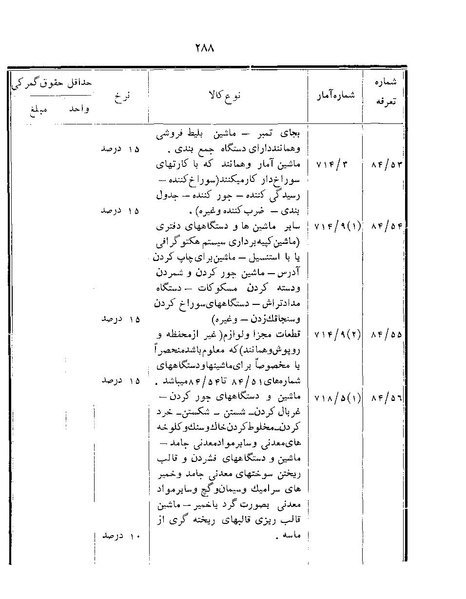 ۲۸۸
شماره تعرفه | شماره آمار | نوع کالا | نرخ | حداقل حقوق گمرکی
واحد | مبلغ
بجای تمبر – ماشین بلیط فروشی
وهماننددارای دستگاه جمع بندی . | ۱۵ درصد
۸۴/۵۳ | ۷۱۴/۳ | ماشین آمار وهمانند که با کارتهای
سوراخ‌دار کارمیکنند(سوراخ‌کننده –
رسیدگی کننده – جور کننده – جدول
بندی – ضرب‌کننده وغیره). | ۱۵ درصد
۸۴/۵۴ | ۷۱۴/۹(۱) | سایر ماشین ها و دستگاههای دفتری
(ماشین‌کپیه‌برداری سیستم هکتوگرافی
یا با استنسیل – ماشین‌برای‌چاپ کردن
آدرس – ماشین جور کردن و شمردن
ودسته کردن مسکوکات – دستگاه
مدادتراش – دستگاههای‌سوراخ کردن
وسنجاق‌زدن – وغیره) | ۱۵ درصد
۸۴/۵۵ | ۷۱۴/۹(۲) | قطعات مجزا ولوازم(غیر ازمحفظه و
روپوش‌وهمانند)که معلوم‌باشدمنحصراً
یا مخصوصاً برای‌ماشینهاودستگاههای
شماره‌های۸۴/۵۱ تا۸۴/۵۴میباشد . | ۱۵ درصد
۸۴/۵۶ | ۷۱۸/۵(۱) | ماشین و دستگاههای جور کردن –
غربال کردن– شستن – شکستن– خرد
کردن–مخلوط‌کردن‌خاک‌وسنگ‌وکلوخه
های‌معدنی وسایرموادمعدنی جامد –
ماشین و دستگاههای فشردن و قالب
ریختن سوختهای معدنی جامد وخمیر
های سرامیک وسیمان‌وگچ وسایرمواد
معدنی بصورت گرد یاخمیر – ماشین
قالب ریزی قالبهای ریخته گری از
ماسه . | ۱۰ درصد